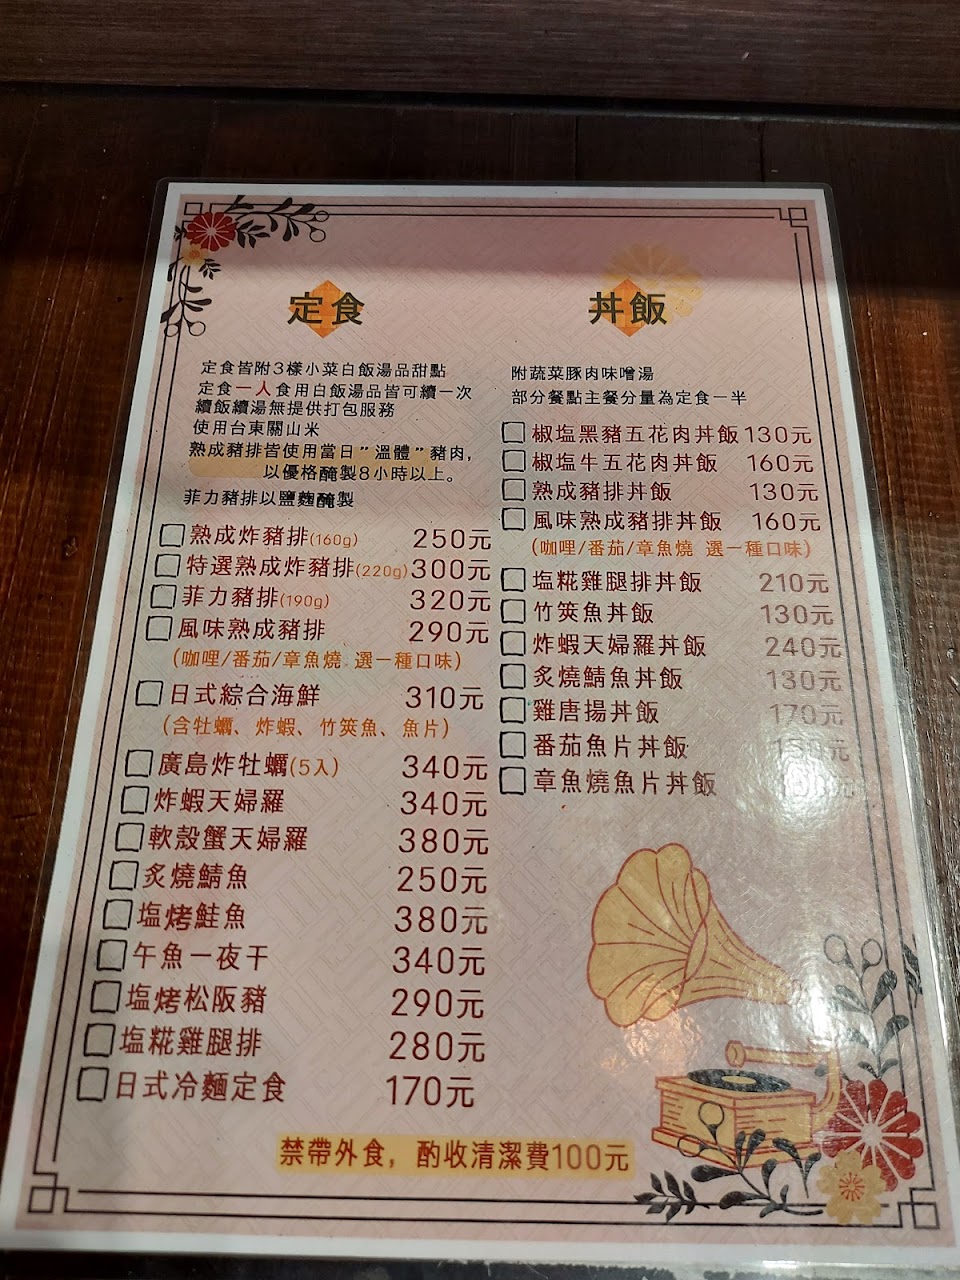 定食
定食皆附3樣小菜白飯湯品甜點
定食一人食用白飯湯品皆可續一次
續飯續湯無提供打包服務
使用台東關山米
熟成豬排皆使用當日"溫體"豬肉，
以優格醃製8小時以上。
菲力豬排以鹽麴醃製
熟成炸豬排(160g) 250元
特選熟成炸豬排(220g) 300元
菲力豬排(190g) 320元
風味熟成豬排 290元
(咖哩/番茄/章魚燒 選一種口味)
日式綜合海鮮 310元
(含牡蠣、炸蝦、竹筴魚、魚片)
廣島炸牡蠣(5入) 340元
炸蝦天婦羅 340元
軟殼蟹天婦羅 380元
炙燒鯖魚 250元
塩烤鮭魚 380元
午魚一夜干 340元
塩烤松阪豬 290元
塩糀雞腿排 280元
日式冷麵定食 170元
丼飯
附蔬菜豚肉味噌湯
部分餐點主餐分量為定食一半
椒塩黑豬五花肉丼飯 130元
椒塩牛五花肉丼飯 160元
熟成豬排丼飯 130元
風味熟成豬排丼飯 160元
(咖哩/番茄/章魚燒 選一種口味)
塩糀雞腿排丼飯 210元
竹筴魚丼飯 130元
炸蝦天婦羅丼飯 240元
炙燒鯖魚丼飯 130元
雞唐揚丼飯 170元
番茄魚片丼飯
章魚燒魚片丼飯
禁帶外食，酌收清潔費100元